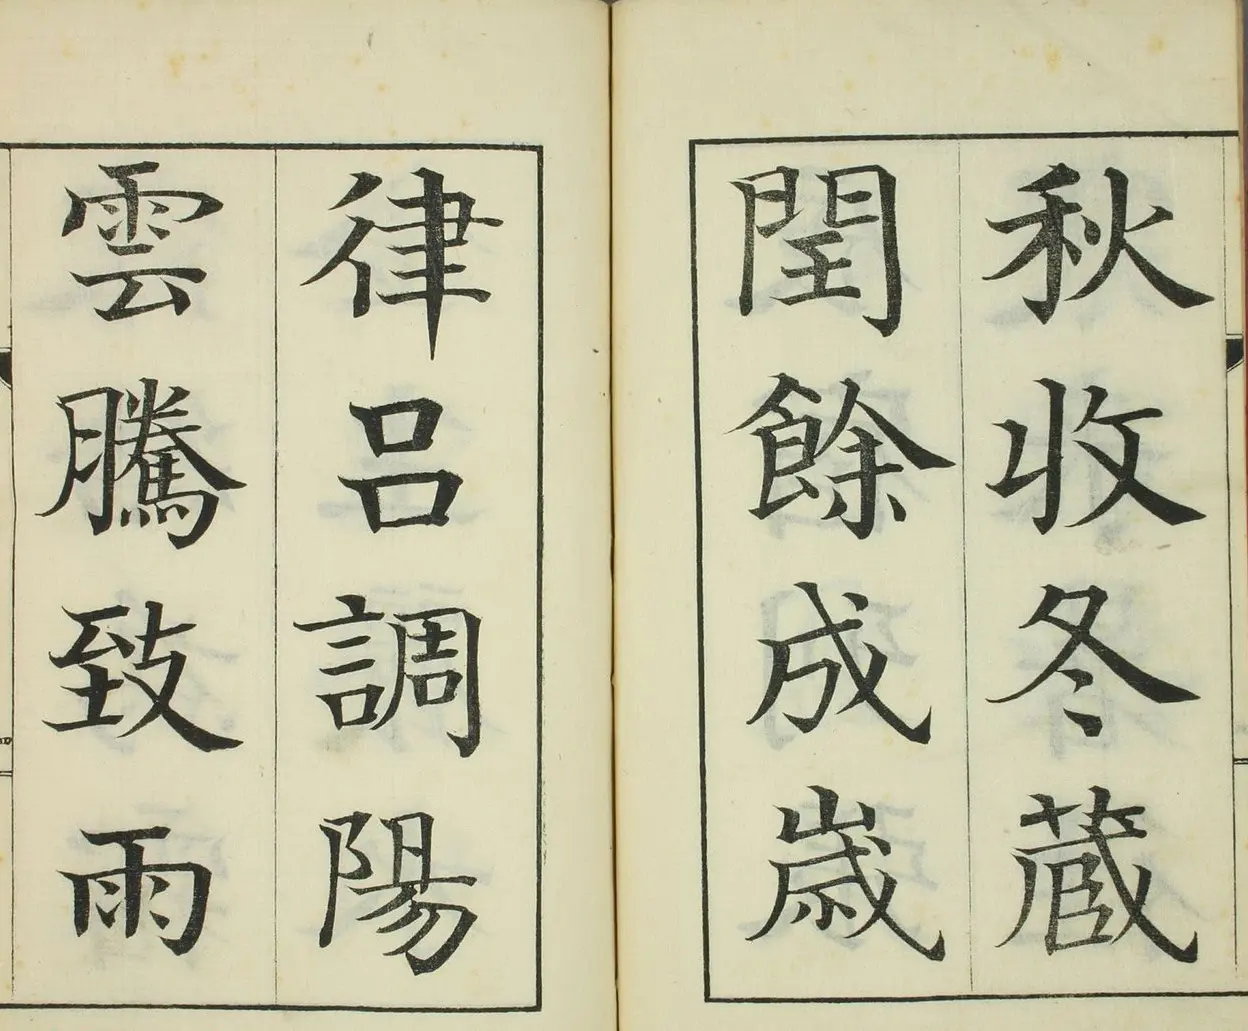 秋收冬蔵
閏餘成歳
律呂調陽
雲騰致雨